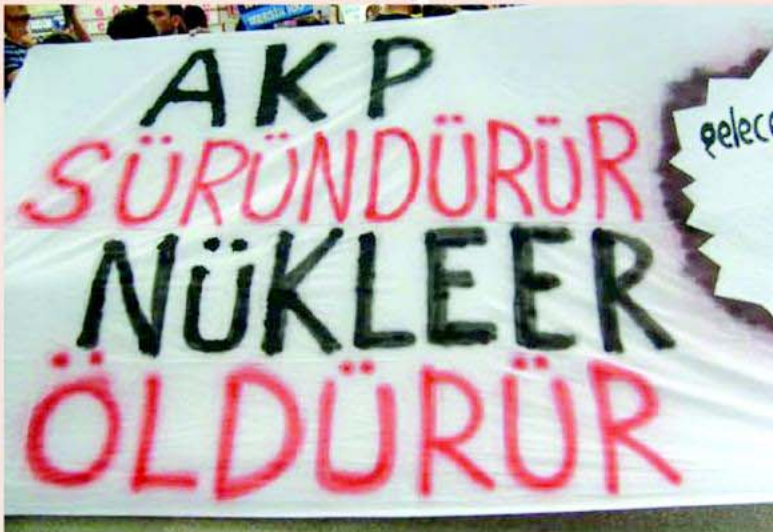 AKP
SÜRÜNDÜRÜR
NÜKLEER
ÖLDÜRÜR